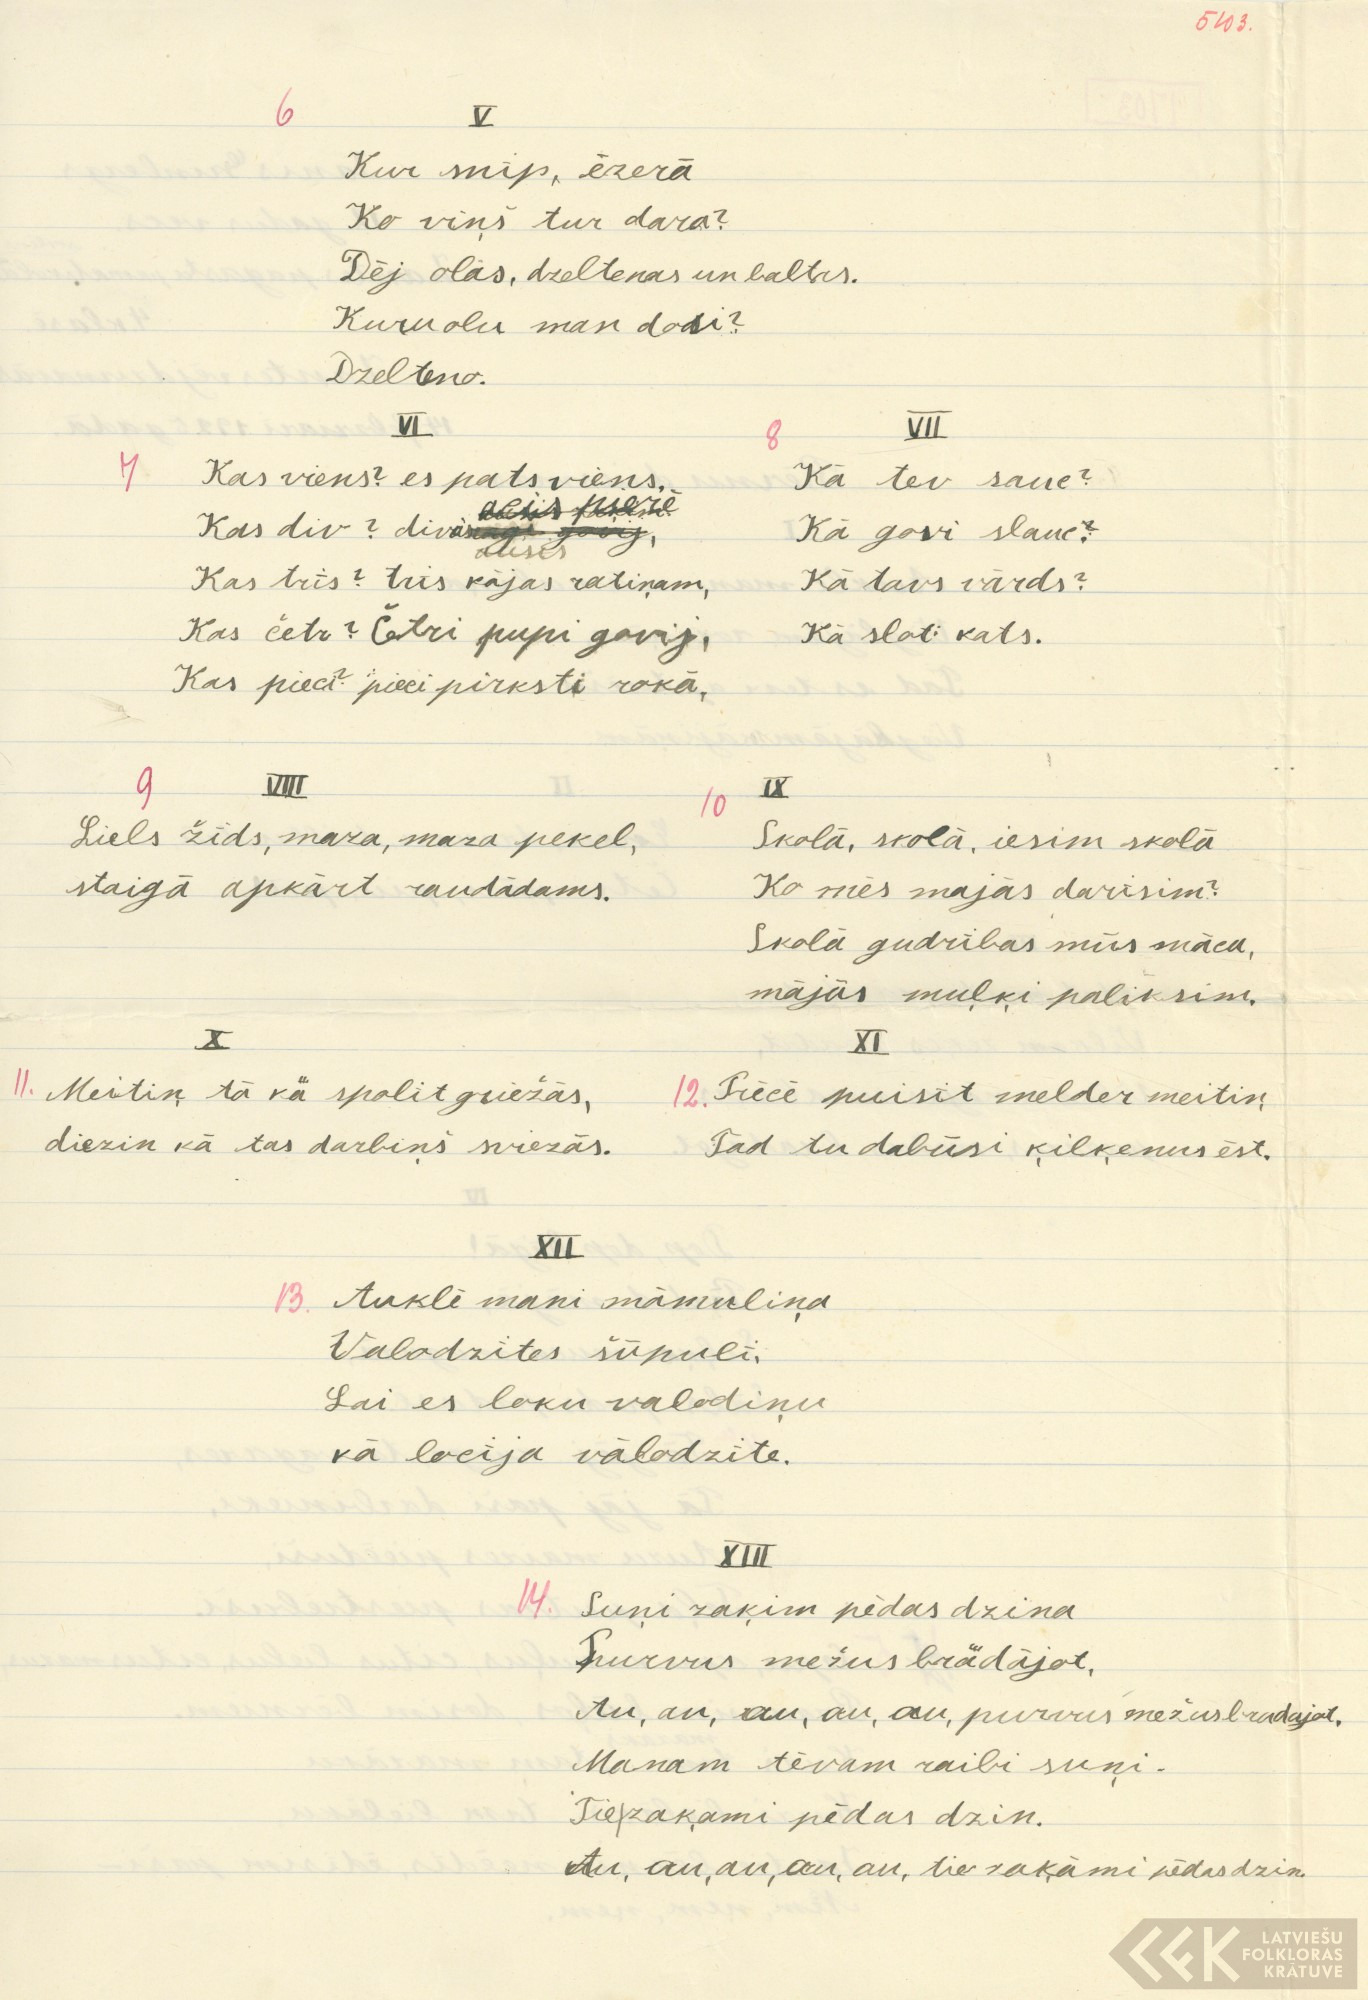 5103.
6 V
Kur snip, ēzerā
Ko viņš tur dara?
Dēj olās, dzeltenas un baltas.
Kuru olu man dosi?
Dzelteno.
VI
7 Kas viens? es pats viens,
acis pierē
Kas div? div ragi govij,
auses
Kas trīs? trīs kājas ratiņam,
Kas četr? Četri pupi govij,
Kas pieci? pieci pirksti rokā,
8 VII
Kā tev sauc?
Kā govi slauc?
Kā tavs vārds?
Kā slot kats.
9 VIII
Liels žīds, maza, maza pekel,
staigā apkārt raudādams.
10 IX
Skolā, skolā, iesim skolā
Ko mēs majās darīsim?
Skolā gudrības mūs māca,
mājās muļķi paliksim.
X
11. Meitiņ tā kā spolit griežās,
diezin kā tas darbiņš sviezās.
XI
12. Priecē puisīt melder meitiņ
Tad tu dabūsi ķilķenus ēst.
XII
13. Auklē mani māmuliņa
Valodzītes šūpulī,
Lai es loku valodiņu
kā locīja vālodzīte.
XIII
14. Suņi zaķim pēdas dzina
Purvus mežus brādājot,
Au, au, au, au, au, purvus mežus bradajot,
Manam tēvam raibi suņi.
Tie zaķami pēdas dzin.
Au, au, au, au, au, tie zaķāmi pēdas dzin.
LATVIEŠU
FOLKLORAS
KRĀTUVE